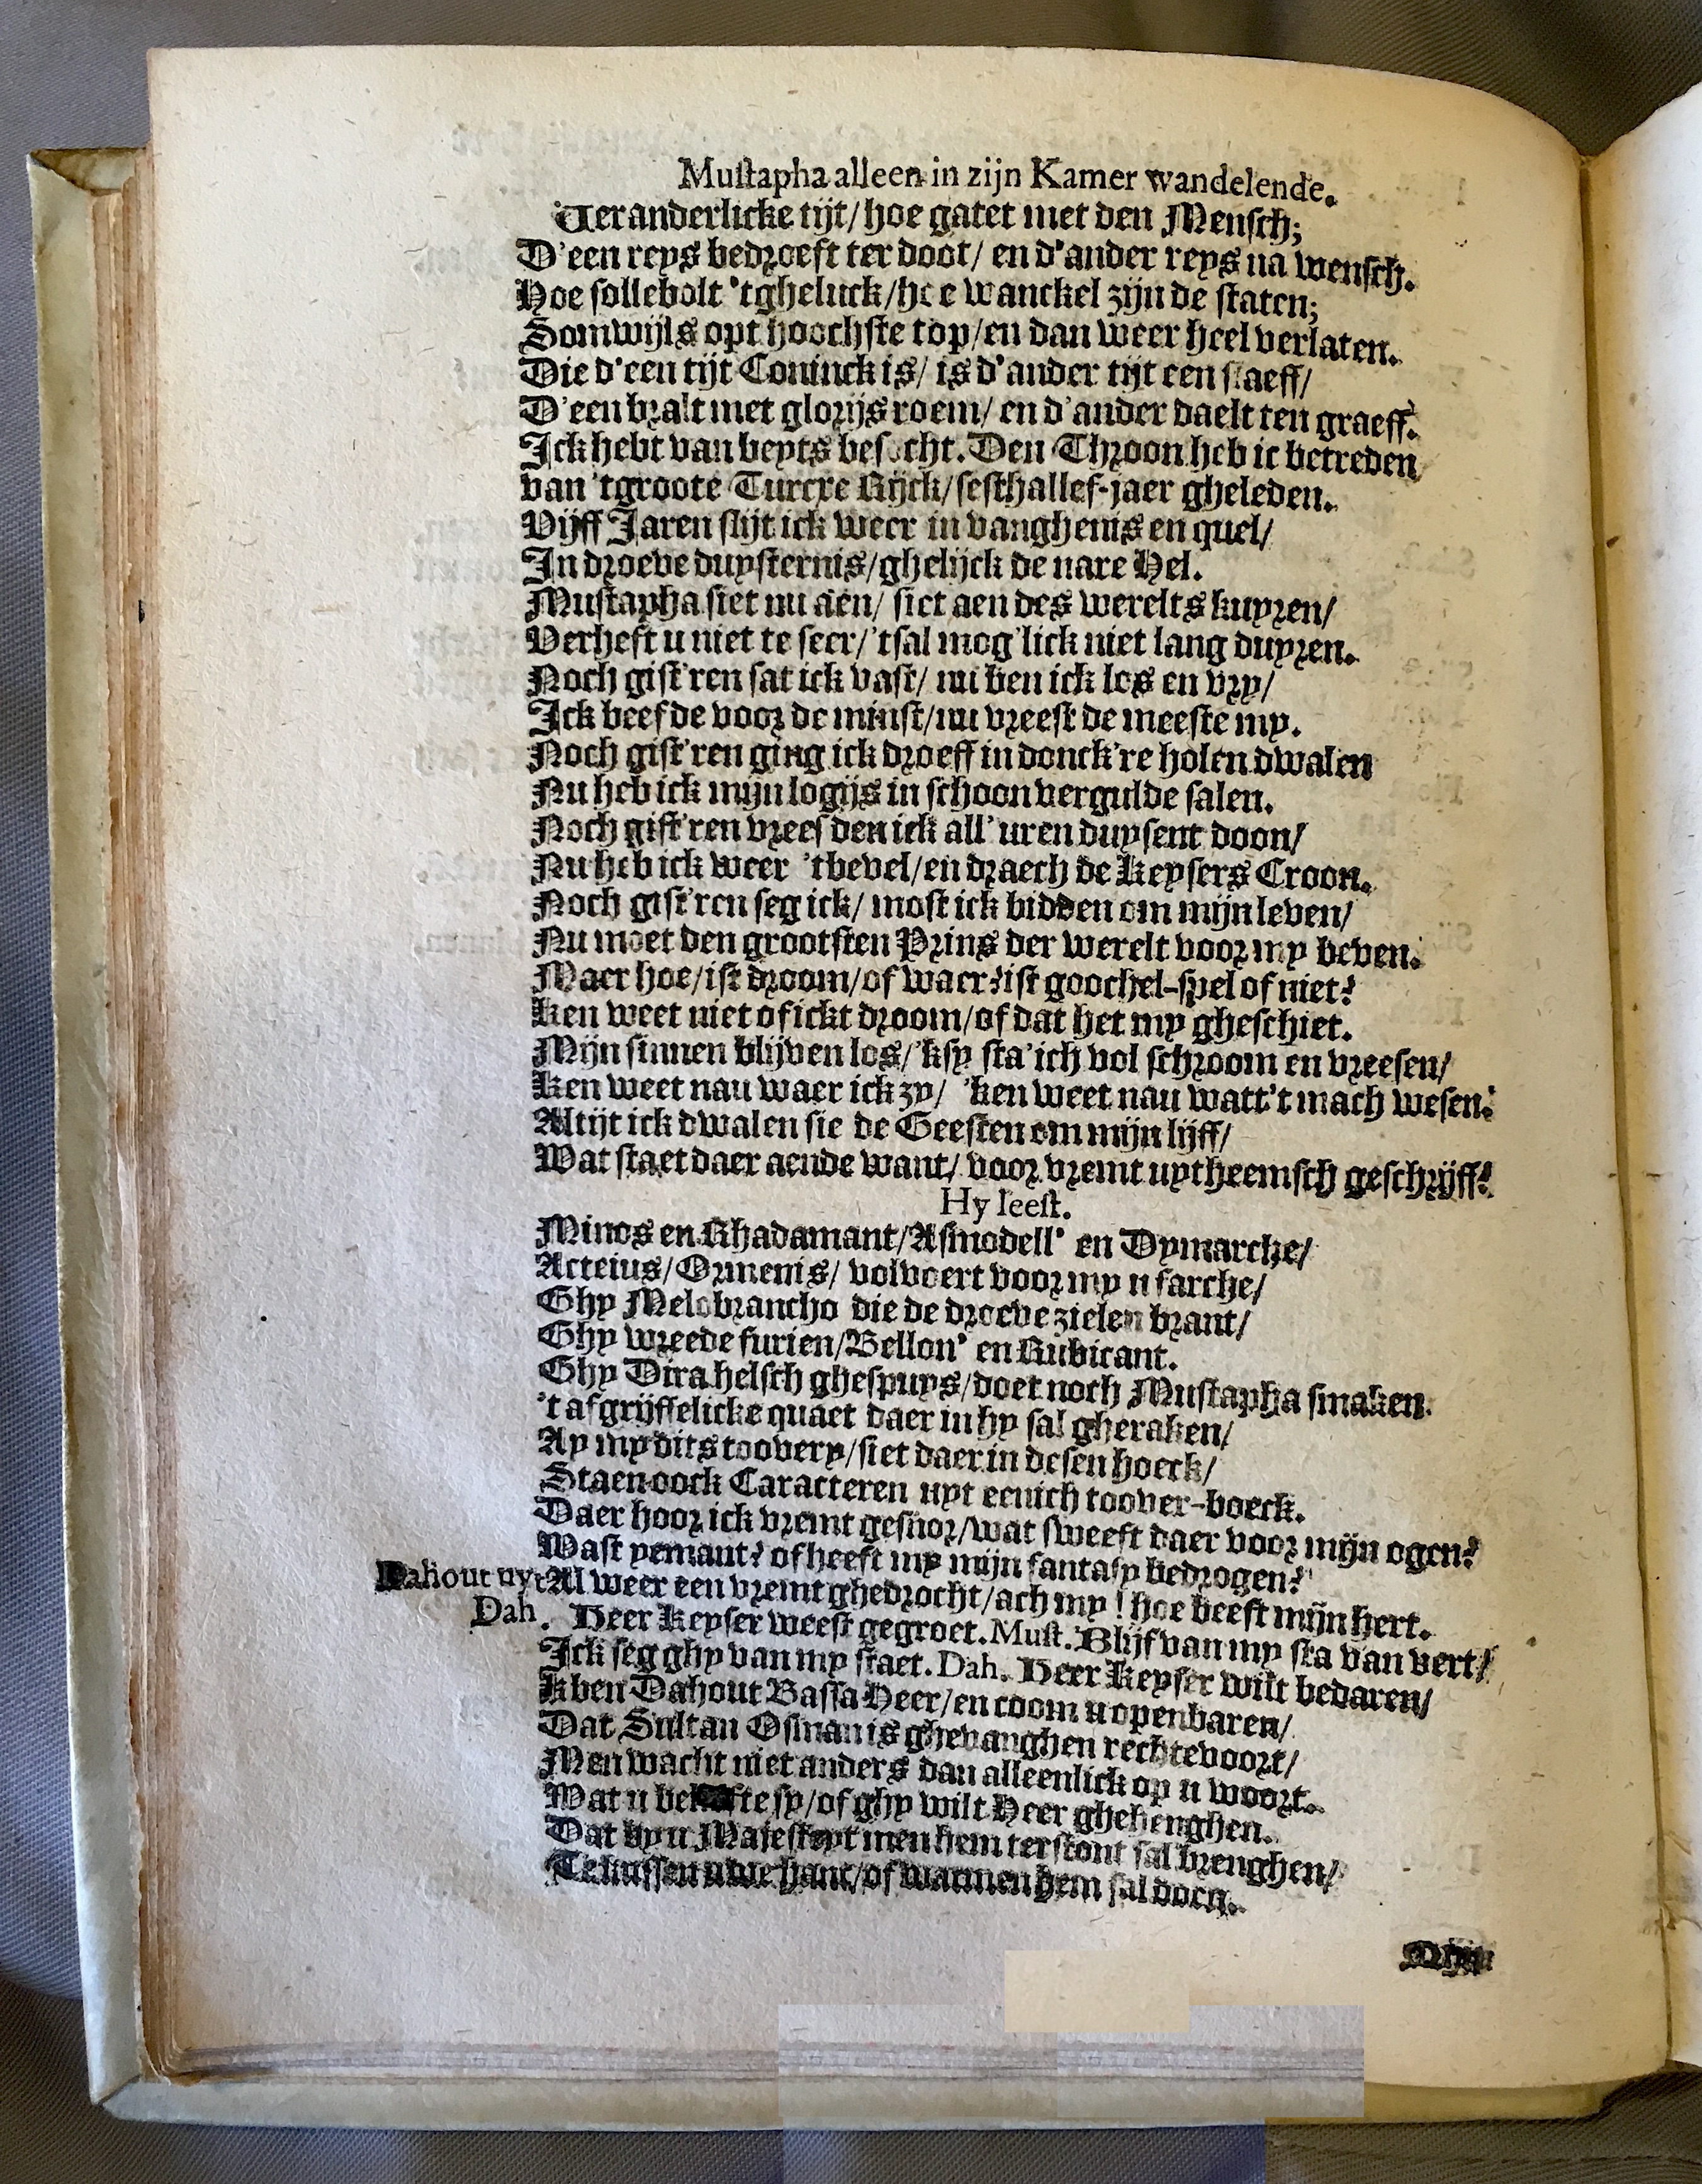 Mustapha alleen in zijn Kamer wandelende.
Veranderlicke tijt/ hoe gatet met den Mensch;
D'een reys bedroeft ter doot/ en d'ander reys na wensch.
Hoe sollebolt 'tgheluck/ hoe wanckel zijn de staten;
Somwijls opt hoochste top/ en dan weer heel verlaten.
Die d'een tijt Coninck is/ is d'ander tijt een slaeff/
D'een bralt met glorijs roem/ en d'ander daelt ten graeff.
Ick hebt van beyts besocht. Den Throon heb ic betreden
van 'tgroote Turcxe Rijck/ sesthallef-jaer gheleden.
Vijff Jaren slijt ick weer in vanghenis en quel/
In droeve duysternis/ ghelijck de nare Hel.
Mustapha siet nu aen/ siet aen des werelts kuyren/
Verheft u niet te seer/ 'tsal mog'lick niet lang duyren.
Noch gist'ren sat ick vast/ nu ben ick los en vry/
Ick beefde voor de minst/ nu vreest de meeste my.
Noch gist'ren ging ick droeff in donck're holen dwalen
Nu heb ick mijn logijs in schoon vergulde salen.
Noch gist'ren vreesden ick all' uren duysent doon/
Nu heb ick weer 'tbevel/ en draech de Keysers Croon.
Noch gist'ren seg ick/ most ick bidden om mijn leven/
Nu moet den grootsten Prins der werelt voor my beven.
Maer hoe/ ist droom/ of waer? ist goochel-spel of niet?
Ken weet niet of ickt droom/ of dat het my gheschiet.
Mijn sinnen blijven los/ 'ksy sta'ich vol schroom en vreesen/
Ken weet nau waer ick zy/ 'ken weet nau watt't mach wesen.
Altijt ick dwalen sie de Geesten om mijn lijff/
Wat staet daer aende want/ voor vremt uytheemsch geschrijff?
Hy leest.
Minos en Rhadamant/ Asmodell' en Dymarche/
Acteius/ Ormenis/ volvoert voor my u farche/
Ghy Melobrancho die de droeve zielen brant/
Ghy wreede furien/ Bellon' en Rubicant.
Ghy Dira helsch ghespuys/ doet noch Mustapha smaken.
't afgrijffelicke quaet daer in hy sal gheraken/
Ay my dits toovery/ siet daer in desen hoeck/
Staen oock Caracteren uyt eenich toover-boeck.
Daer hoor ick vremt gesnor/ wat sweeft daer voor mijn ogen?
Wast yemant? of heeft my mijn fantasy bedrogen?
Dahout uyt Al weer een vremt ghedrocht/ ach my! hoe beeft mijn hert.
Dah. Heer Keyser weest gegroet. Must. Blijf van my sta van vert/
Ick seg ghy van my staet. Dah. Heer Keyser wilt bedaren/
Kben Dahout Bassa Heer/ en coom u openbaren/
Dat Sultan Osman is ghevanghen rechtevoort/
Men wacht niet anders dan alleenlick op u woort.
Wat u beliefte sy/ of ghy wilt Heer ghehenghen.
Dat by u Majesteyt men hem terstont sal brenghen/
Te kussen uwe hant/ of wat men hem sal doen.